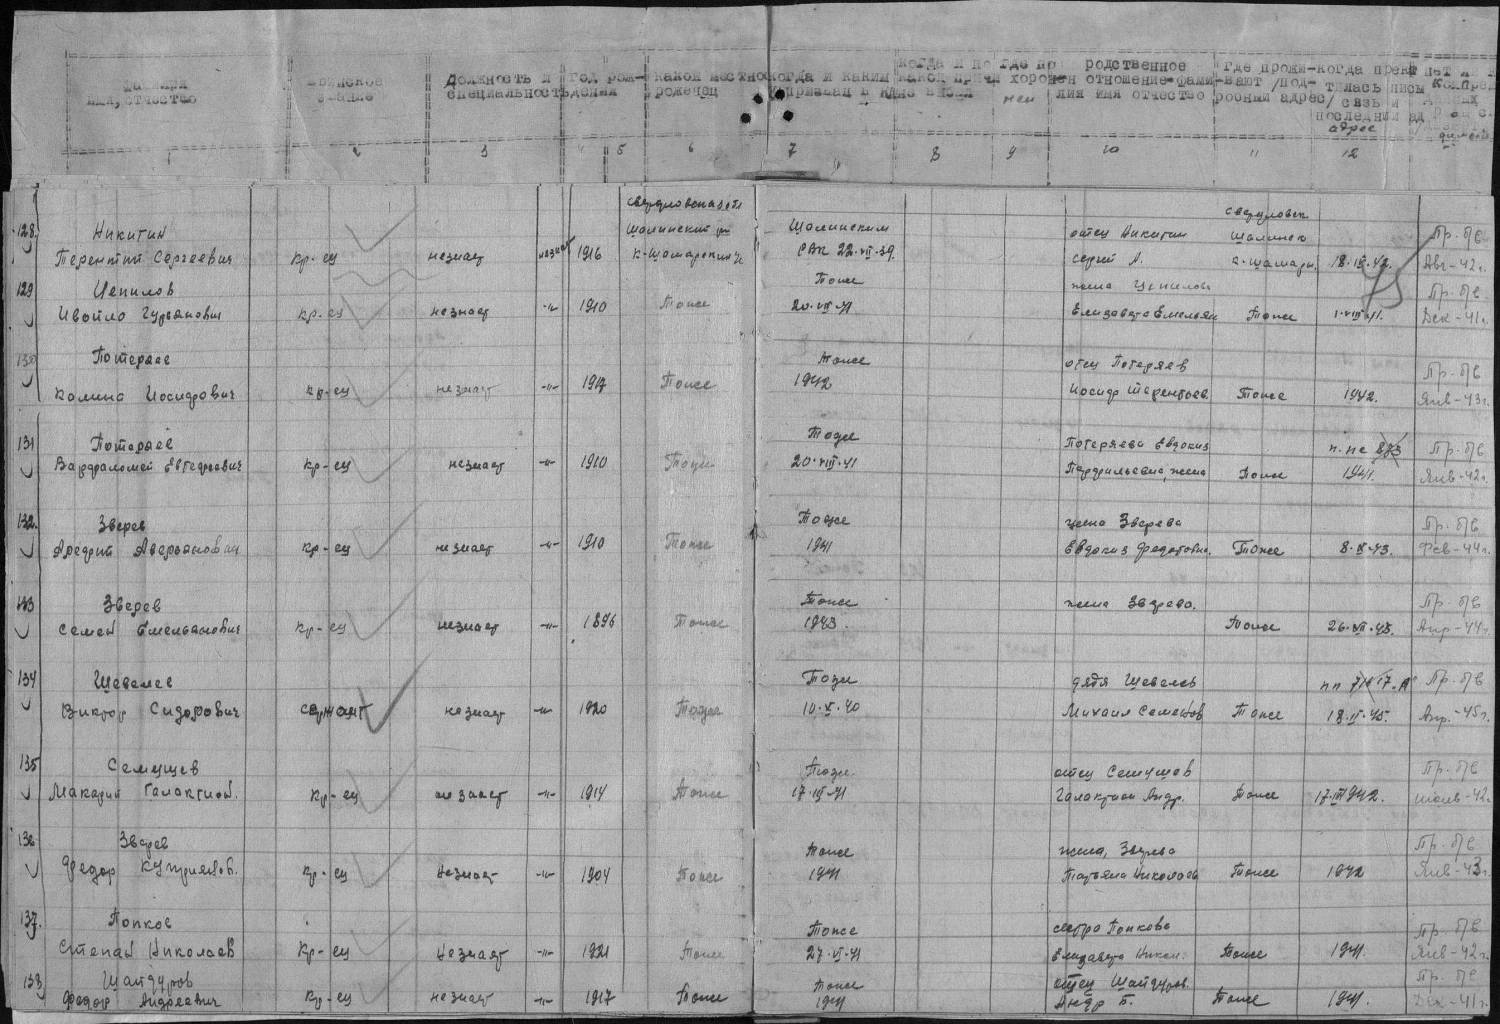 фамилия имя, отчество
воинское звание
должность и специальность
год рождения
какой местно рожеңец
когда и каким призван
где похоронен
родственное отношение фамилия имя отчество
где проживают /подробный адрес/
когда прекратилась письм связь и последний адрес
1 2 3 5 6 7 8 9 10 11 12
128. Никитин
Терентий Сергеевич кр-ец незнает незнает 1916 Шалинский р Шалинским РВК 22-VII-39. отец Никитин Сергей А. Свердловск Шалинск 18-III-42. Пр. п/в Авг-42г.
129 Цепилов
Ивойло Гурьянович кр-ец незнает -"- 1910 Тоже Тоже 20-VIII-41 жена Цепилова Елизавета Емельян Тоже 1-VIII-41. Пр. п/в Дек-41г.
130 Потеряев
Калина Иосифович кр-ец незнает -"- 1917 Тоже Тоже 1942 отец Потеряев Иосифр Терентьев. Тоже 1942. Пр. п/в Янв-43г.
131 Потеряев
Варфоломей Евгедреевич кр-ец незнает -"- 1910 Тоже Тоже 20-VIII-41 Потеряева Евдокия Парфильевна, жена Тоже 1941. Пр. п/в Янв-42г.
132. Зверев
Аредрий Аверьянович кр-ец незнает -"- 1910 Тоже Тоже 1941 жена Зверева Евдокия Федотовн. Тоже 8-XI-43. Пр. п/в Фев-44г.
133 Зверев
Семен Емельянович кр-ец незнает -"- 1896 Тоже Тоже 1943. жена Зверева. Тоже 26-VII-43. Пр. п/в Апр-44г.
134 Шевелев
Виктор Сидорович сержант незнает -"- 1920 Тоже Тоже 10-X-40 дядя Шевелев Михаил Семенов Тоже 18-II-45. Пр. п/в Апр.-45г.
135 Семушев
Макарий Галактион. кр-ец незнает -"- 1914 Тоже Тоже 17-III-41 отец Семушов Галактион Андр. Тоже 17-III 1942. Пр. п/в июнь-42г.
136 Зверев
Федор Куприянов. кр-ец незнает -"- 1904 Тоже Тоже 1941 жена, Зверева Татьяна Николаев Тоже 1942 Пр. п/в Янв-43г.
137. Попков
Степан Николаев кр-ец незнает -"- 1921 Тоже Тоже 27-VI-41 сестра Попкова Елизавета Никол. Тоже 1941. Пр. п/в Янв-42г.
138 Шайдуров
Федор Андреевич кр-ец незнает -"- 1917 Тоже Тоже 1941 отец Шайдуров. Андр Б. Тоже 1941. Пр. п/в Дек-41г.